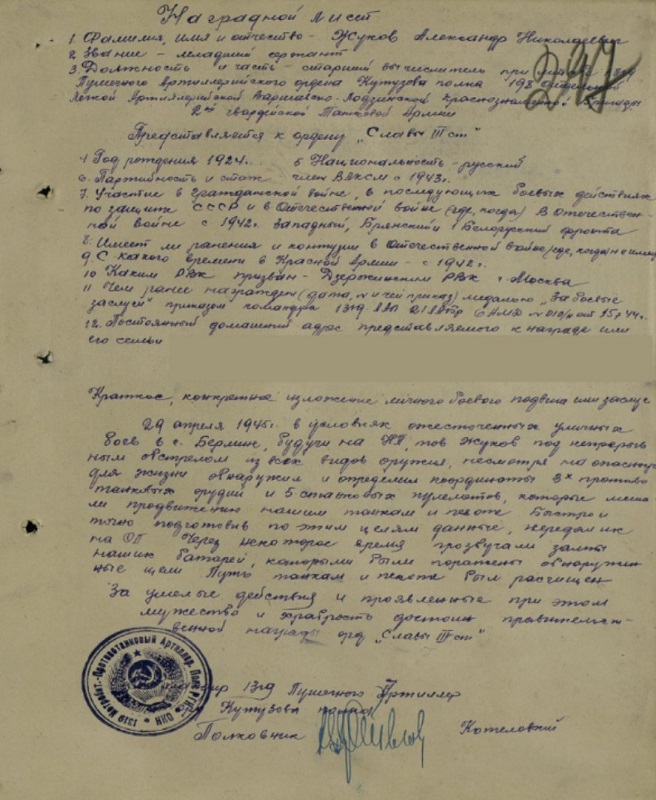 Наградной лист
1. Фамилия, имя и отчество - Жуков Александр Николаевич
2 Звание - младший сержант
3. Должность и часть - старший вычислитель при
Пушечного Артиллерийского ордена Кутузова полка 198
Легкой Артиллерийской Варшавско-Лодзинской Краснознаменной Бригады
2ой гвардейской Танковой Армии
247
Представляется к ордену „Славы III ст"
4 Год рождения 1924г. 5 Национальность - русский
6. Партийность и стаж - член ВЛКСМ с 1943г.
7. Участие в гражданской войне, в последующих боевых действиях
по защите СССР и в Отечественной войне (где, когда) В отечествен-
ной войне с 1942г. Западный, Брянский, 1 Белорусский фронта
8. Имеет ли ранения и контузии в Отечественной войне/где, когда/ не имеет
9. С какого времени в Красной Армии - с 1942г.
10 Каким РВК призван - Дзержинским РВК г. Москва
11 Чем ранее награжден (дата, № и чей приказ) медалью „За боевые
заслуги" приказом командира
12. Постоянный домашний адрес представляемого к награде или
его семьи
Краткое, конкретное изложение личного боевого подвига или заслуг
29 апреля 1945г. в условиях ожесточенных уличных
боев в г. Берлине, будучи на НП, тов Жуков под непрерыв
ным обстрелом из всех видов оружия, несмотря на опасность
для жизни обнаружил и определил координаты 3х противо
танковых орудий и 5 станковых пулеметов, которые меша-
ли продвижению нашим танкам и пехоте Быстро и
точно подготовив по этим целям данные, передал их
на ОП Через некоторое время прозвучали залпы
наших батарей, которыми были поражены обнаружен
ные цели Путь танкам и пехоте был расчищен
За умелые действия и проявленные при этом
мужество и храбрость достоин правительст-
венной награды орд „Славы III ст"
1319 Пушечного Артиллер
Кутузова полка
Полковник Котеловкий